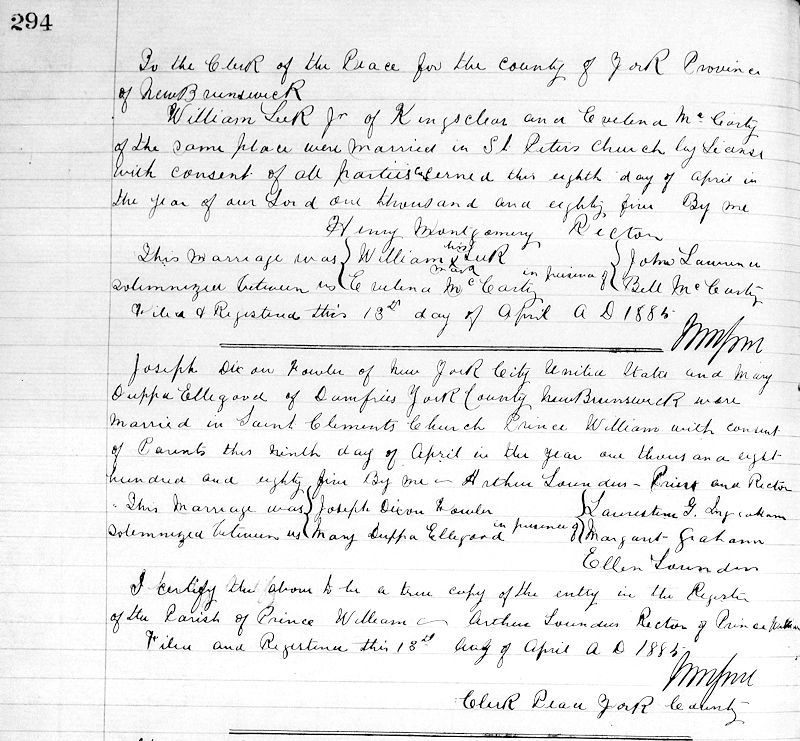 294
To the Clerk of the Peace for the county of York Province
of New Brunswick
William Leek Jr of Kingsclear and Evelena McCarty
of the same place were married in St Peters Church by License
with consent of all parties concerned this eighth day of April in
the year of our Lord one thousand and eighty five By me
Henry Montgomery Rector
This Marriage was William his Leek John Lawrence
solemnized between us mark Evelena McCarty in presence of Bell McCarty
Filed & Registered this 13th day of April A D 1885
Joseph Dixon Fowler of New York City United States and Mary
Duppa Ellegood of Dumfries York County New Brunswick were
Married in Saint Clements Church Prince William with consent
of Parents this ninth day of April in the year one thousand eight
hundred and eighty five By me Arthur Lounders - Priest and Rector
This Marriage was Joseph Dixon Fowler G. Ingraham
solemnized between us Mary Duppa Ellegood in presence of Margaret Graham
Ellen Lounders
I certify the above to be a true copy of the entry in the Register
of the Parish of Prince William Arthur Lounders Rector of Prince William
Filed and Registered this 13th day of April A D 1885
Clerk Peace York County